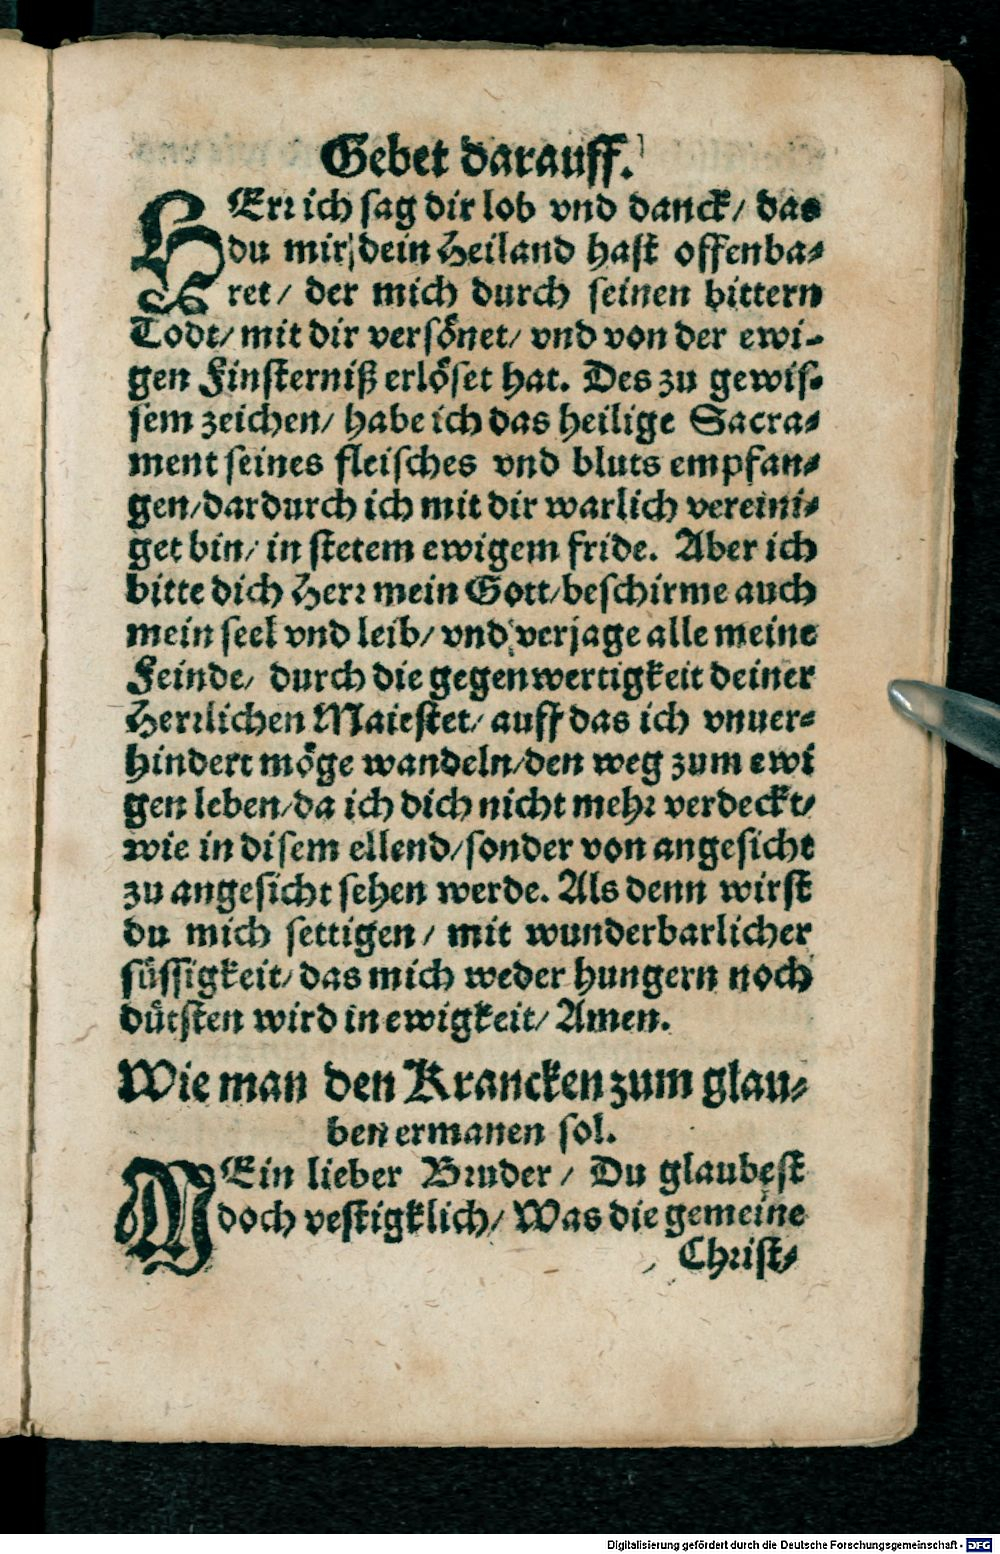 Gebet darauff.
HErr ich sag dir lob vnd danck/ das
du mir dein Heiland hast offenba-
ret/ der mich durch seinen bittern
Todt/ mit dir versönet/ vnd von der ewi-
gen Finsterniß erlöset hat. Des zu gewis-
sem zeichen/ habe ich das heilige Sacra-
ment seines fleisches vnd bluts empfan-
gen/ dardurch ich mit dir warlich vereini-
get bin/ in stetem ewigem fride. Aber ich
bitte dich Herr mein Gott/ beschirme auch
mein seel vnd leib/ vnd verjage alle meine
Feinde/ durch die gegenwertigkeit deiner
Herrlichen Maiestet/ auff das ich vnuer-
hindert möge wandeln/ den weg zum ewi
gen leben/ da ich dich nicht mehr verdeckt/
wie in disem ellend/ sonder von angesicht
zu angesicht sehen werde. Als denn wirst
du mich settigen/ mit wunderbarlicher
süssigkeit/ das mich weder hungern noch
dürsten wird in ewigkeit/ Amen.
Wie man den Krancken zum glau-
ben ermanen sol.
MEin lieber Bruder/ Du glaubest
doch vestigklich/ Was die gemeine
Christ-
Digitalisierung gefördert durch die Deutsche Forschungsgemeinschaft - DFG